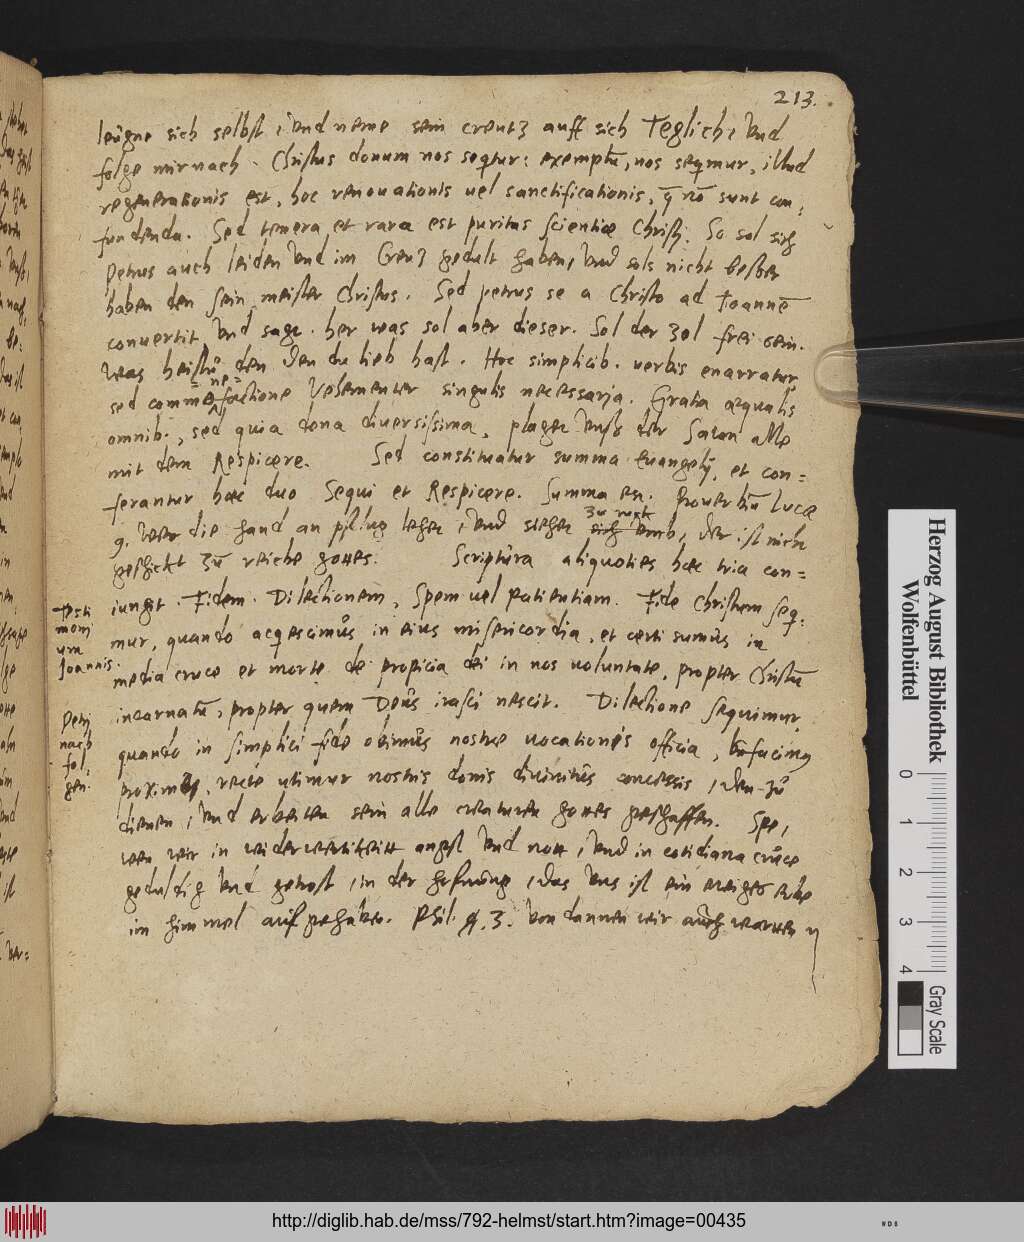 213.
leügne sich selbst, und neme sein creutz auff sich Teglich, und
folge mir nach. Christus donum nos seqtur: exemplū, nos seqmur, illud
regenerationis est, hoc renouationis uel sanctificationis, q̄ nō sunt con,
fundenda. Sed tenera et rara est puritas scientiæ Christi. So sol sich
petrus auch leiden und im Creuz gedult haben, und sols nicht besser
haben den sein meister Christus. Sed petrus se a Christo ad Ioannē
conuertit und sagt. her was sol aber dieser. Sol der zol frei sein.
was heistu den den du lieb hast. Hoc simplicib. uerbis enarratur
sed uehementer singulis necessaria. Gratia æqualis
omnib., sed quia dona diuersissima, plaget unss der Satan alle
mit dem Respicere. Sed constituatur summa Euangelij, et con=
ferantur hæc duo Sequi et Respicere. Summa est. prouerbiū Lucæ
zu rugk
9. wer die hand an pflug leget, und siehet sich umb, der ist nicht
geschickt zū reiche gottes. Scriptura aliquoties hæc tria con=
iungit. Fidem. Dilectionem, Spem uel patientiam. Fide Christum seq.
mur, quando acqescimus in eius misericordia, et certi sumus in
media cruce et morte de propicia dei in nos uoluntate, propter Christū
incarnatū, propter quem Deus irasci nescit. Dilectione sequimur
quando in simplici fide obimus nostræ uocationis officia,
recte utimur nostris donis diuinitus concessis, den zu
dienen, und erbeiten sein alle creaturen gottes geschaffen. Spe,
wen wir in widerwertikeitt angst und nott, und in cotidiana cruce
gedultig und getrost, in der hofnūng, das uns ist ein ewiges erbe
im himmel aufgehaben. Phil. 3. von dannen wir auch warten
Testi
moni
um
Joannis.
Petri
nach
fol,
gen.
Herzog August Bibliothek
Wolfenbüttel
0 1 2 3 4
Gray Scale
http://diglib.hab.de/mss/792-helmst/start.htm?image=00435